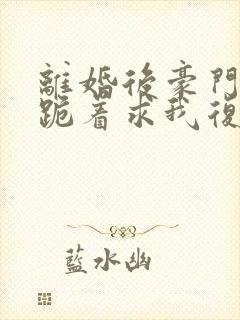 離婚後豪門
跪着求我復
藍水幽